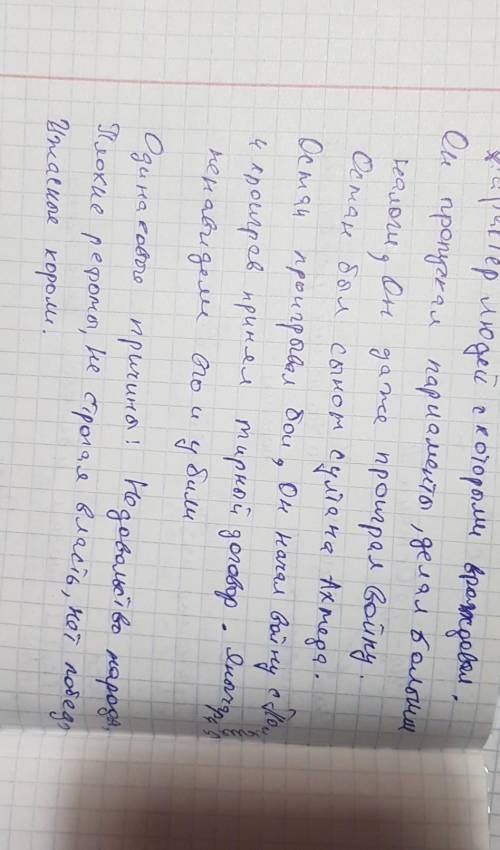 людей с которыми враждовал.
Он пропускал париаменты, делал большим
налоги, Он даже проиграл войну.
Осман был сыном султана Ахмеда.
Осман проигрывал бои, Он начал войну с
и проиграв принял мирный договор.
ненавидели его и убили
Одинаковые причины! Недовальство народа,
Плохие рефомы, не строгая власть, нет побед,
Ужасные короли.